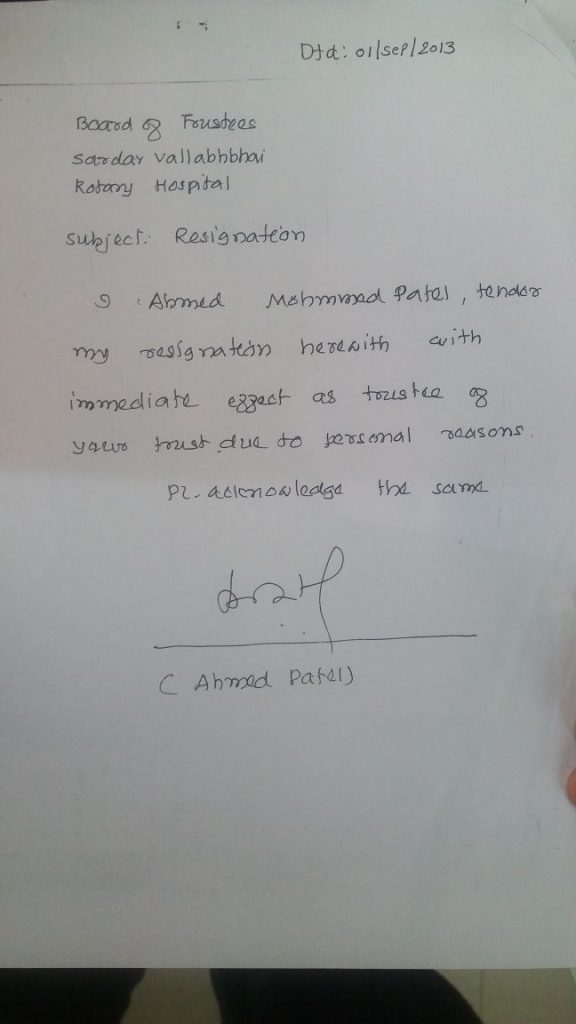 Dtd: 01/Sep/2013
Board of Trustees
Sardar Vallabhbhai
Rotary Hospital
Subject: Resignation
I Ahmed Mohmmed Patel, tender
my resignation herewith with
immediate effect as trustee of
your trust due to personal reasons.
Pl. acknowledge the same
(Ahmed Patel)